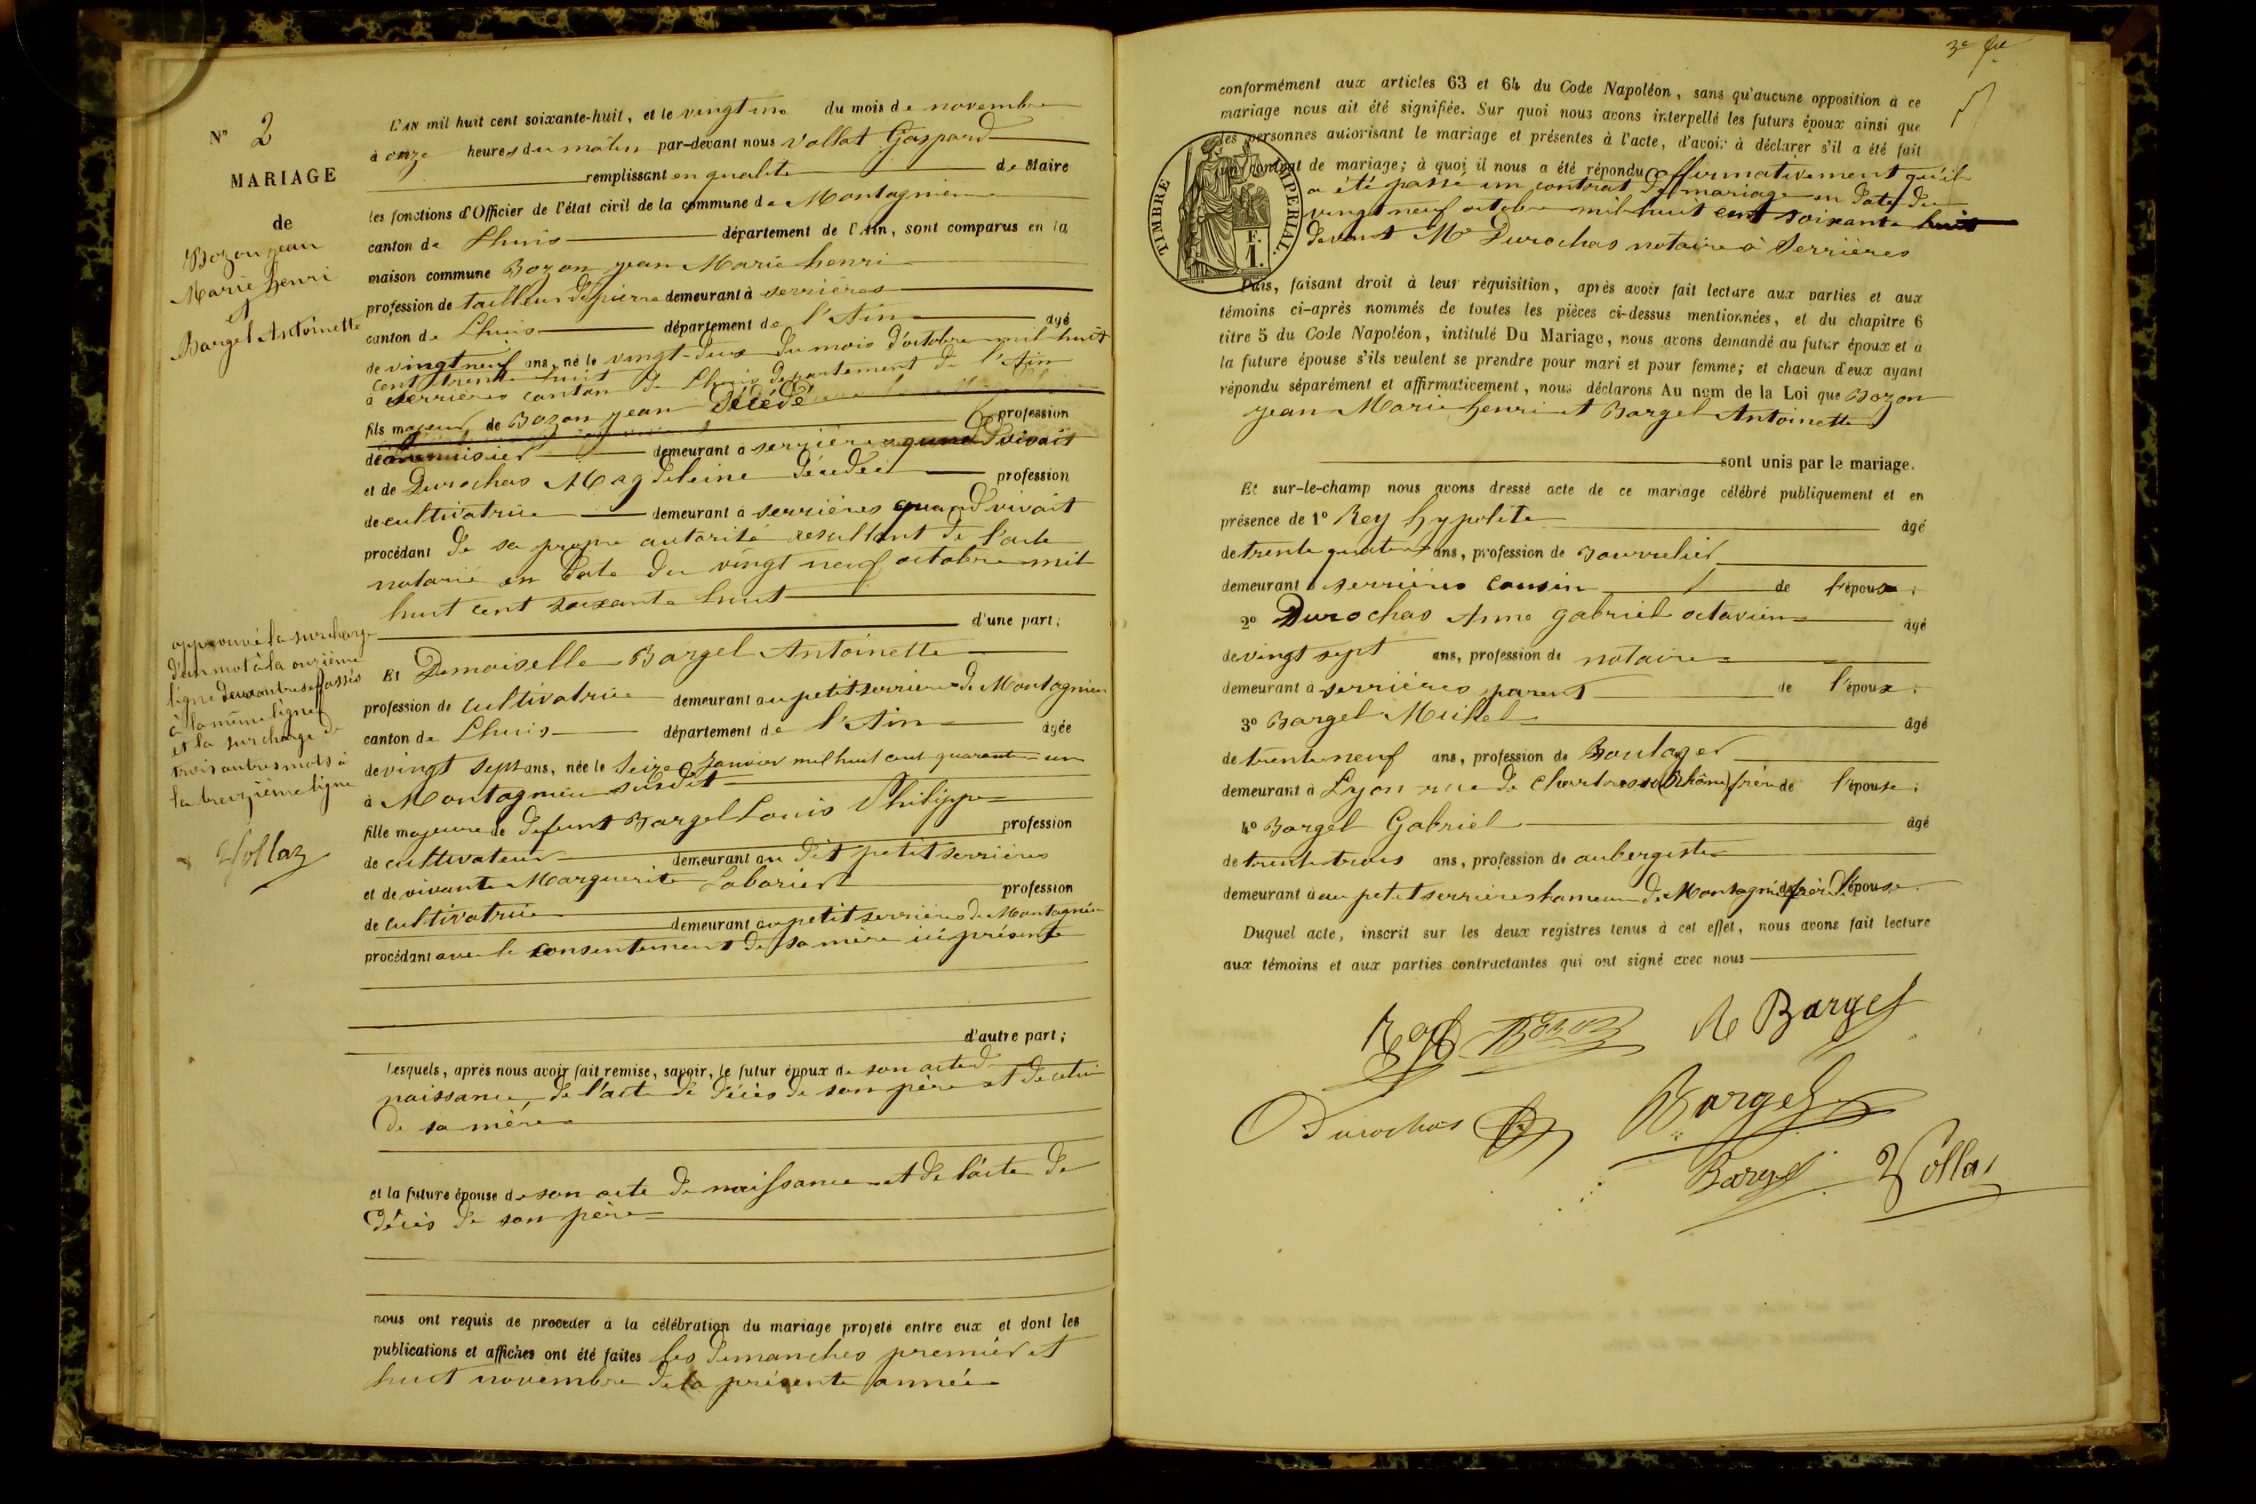 N° 2
MARIAGE
de
Bozon jean
Marie henri
et
Bargel Antoinette
L'AN mil huit cent soixante-huit, et le vingt un du mois de novembre
à onze heures du matin par-devant nous Vallat Gaspard
remplissant en qualité de Maire
les fonctions d'Officier de l'état civil de la commune de Montagnieu
canton de Lhuis département de l'Ain, sont comparus en la
maison commune Bozon jean Marie henri
profession de tailleur de pierre demeurant à serrières
canton de Lhuis département de l'Ain âgé
de vingt neuf ans, né le vingt deux du mois d'octobre mil huit
cent trente huit
à serrières canton de Lhuis departement de l'Ain
fils majeur de Bozon jean décédé profession
de menuisier demeurant à serrières quand vivait
et de Durochas Magdeleine décédée profession
de cultivatrice demeurant à serrières quand vivait
procédant de sa propre autorité résultant de l'acte
notarié en date du vingt neuf octobre mil
huit cent soixante huit
d'une part;
approuvé la surcharge
d'un mot à la onzième
ligne deux autres effassés
à la même ligne
et la surcharge de
trois autres mots à
la treizième ligne
Vollaz
Et Demoiselle Bargel Antoinette
profession de cultivatrice demeurant au petit serrières de Montagnieu
canton de Lhuis département de l'Ain âgée
de vingt sept ans, née le seize Janvier mil huit cent quarante un
à Montagnieu susdit
fille majeure de defunt Bargel Louis Philippe profession
de cultivateur demeurant au dit petit serrières
et de vivante Marguerite Laborier profession
de cultivatrice demeurant au petit serrières de Montagnieu
procédant avec le consentement de sa mère ici présente
d'autre part;
Lesquels, après nous avoir fait remise, savoir, le futur époux de son acte de
naissance, de l'acte de décès de son père et de celui
de sa mère
et la future épouse de son acte de naissance et de l'acte de
décès de son père
nous ont requis de procéder à la célébration du mariage projeté entre eux et dont les
publications et affiches ont été faites les dimanches premier et
huit novembre de la présente année
3e
conformément aux articles 63 et 64 du Code Napoléon, sans qu'aucune opposition à ce
mariage nous ait été signifiée. Sur quoi nous avons interpellé les futurs époux ainsi que
les personnes autorisant le mariage et présentes à l'acte, d'avoir à déclarer s'il a été fait
un contrat de mariage; à quoi il nous a été répondu affirmativement qu'il
a été passé un contrat de mariage en date du
vingt neuf octobre mil huit cent soixante huit
devant Me Durochas notaire à Serrières
TIMBRE IMPERIAL.
F.
1.
Puis, faisant droit à leur réquisition, après avoir fait lecture aux parties et aux
témoins ci-après nommés de toutes les pièces ci-dessus mentionnées, et du chapitre 6
titre 5 du Code Napoléon, intitulé Du Mariage, nous avons demandé au futur époux et à
la future épouse s'ils veulent se prendre pour mari et pour femme; et chacun d'eux ayant
répondu séparément et affirmativement, nous déclarons Au nom de la Loi que Bozon
jean Marie henri et Bargel Antoinette
sont unis par le mariage.
Et sur-le-champ nous avons dressé acte de ce mariage célébré publiquement et en
présence de 1° Rey hypolite âgé
de trente quatre ans, profession de Bourrelier
demeurant à serrières cousin de l'époux;
2° Durochas Anne gabriel octavien âgé
de vingt sept ans, profession de notaire
demeurant à serrières parent de l'époux;
3° Bargel Michel âgé
de trente neuf ans, profession de Boulager
demeurant à Lyon rue de Chartres (Rhône) frère de l'épouse;
4° Bargel Gabriel âgé
de trente trois ans, profession de aubergiste
demeurant à au petit serrières hameau de Montagnieu frère de l'épouse.
Duquel acte, inscrit sur les deux registres tenus à cet effet, nous avons fait lecture
aux témoins et aux parties contractantes qui ont signé avec nous
Rey Bozon Bargel
Durochas Bargel
Bargel Vollaz